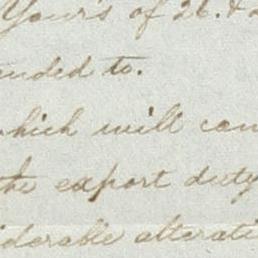 Yours of 26. &
ended to.
which will can
the export duty
iderable alterati